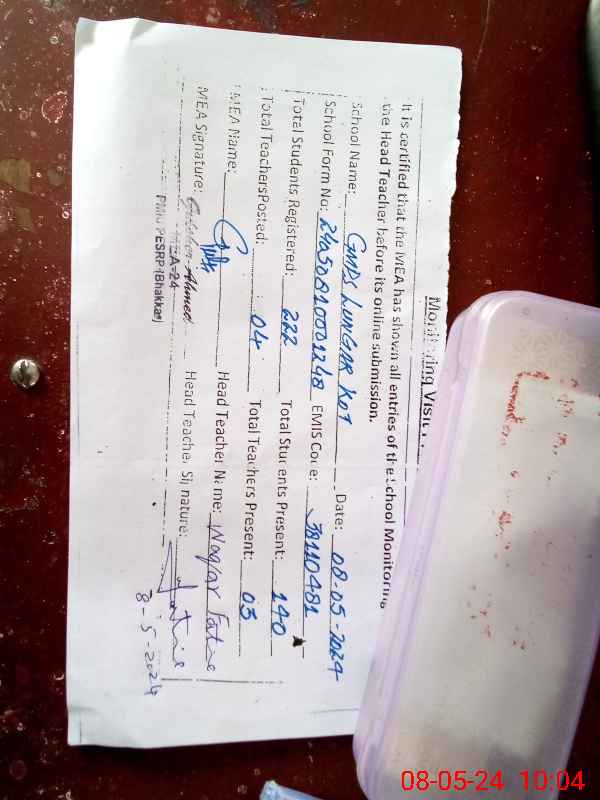 Monitoring Visit
It is certified that the MEA has shown all entries of the School Monitoring
the Head Teacher before its online submission.
School Name: GMPS LUNGAR KOT Date: 08-05-2024
School Form No: EMIS Code: 38110481
Total Students Registered: 222 Total Students Present: 140
Total Teachers Posted: 04 Total Teachers Present: 03
MEA Name: Head Teacher Name: Waqar
MEA Signature: Head Teacher Signature:
Ahmed
MEA-24
PMIU PESRP (Bhakkar)
8-5-2024
08-05-24 10:04